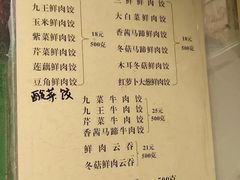 九王鲜肉饺
玉米鲜肉饺
紫菜鲜肉饺
芹菜鲜肉饺
莲藕鲜肉饺
豆角鲜肉饺
18元
500克
三鲜肉饺
大白菜鲜肉饺
香茜马蹄鲜肉饺
冬菇马蹄鲜肉饺
木耳冬菇鲜肉饺
红萝卜大葱鲜肉饺
18元
500克
酸菜饺
九菜牛肉饺
九王牛肉饺
芹菜牛肉饺
香茜马蹄牛肉饺
25元
500克
鲜肉云吞
冬菇鲜肉云吞
21元
500克